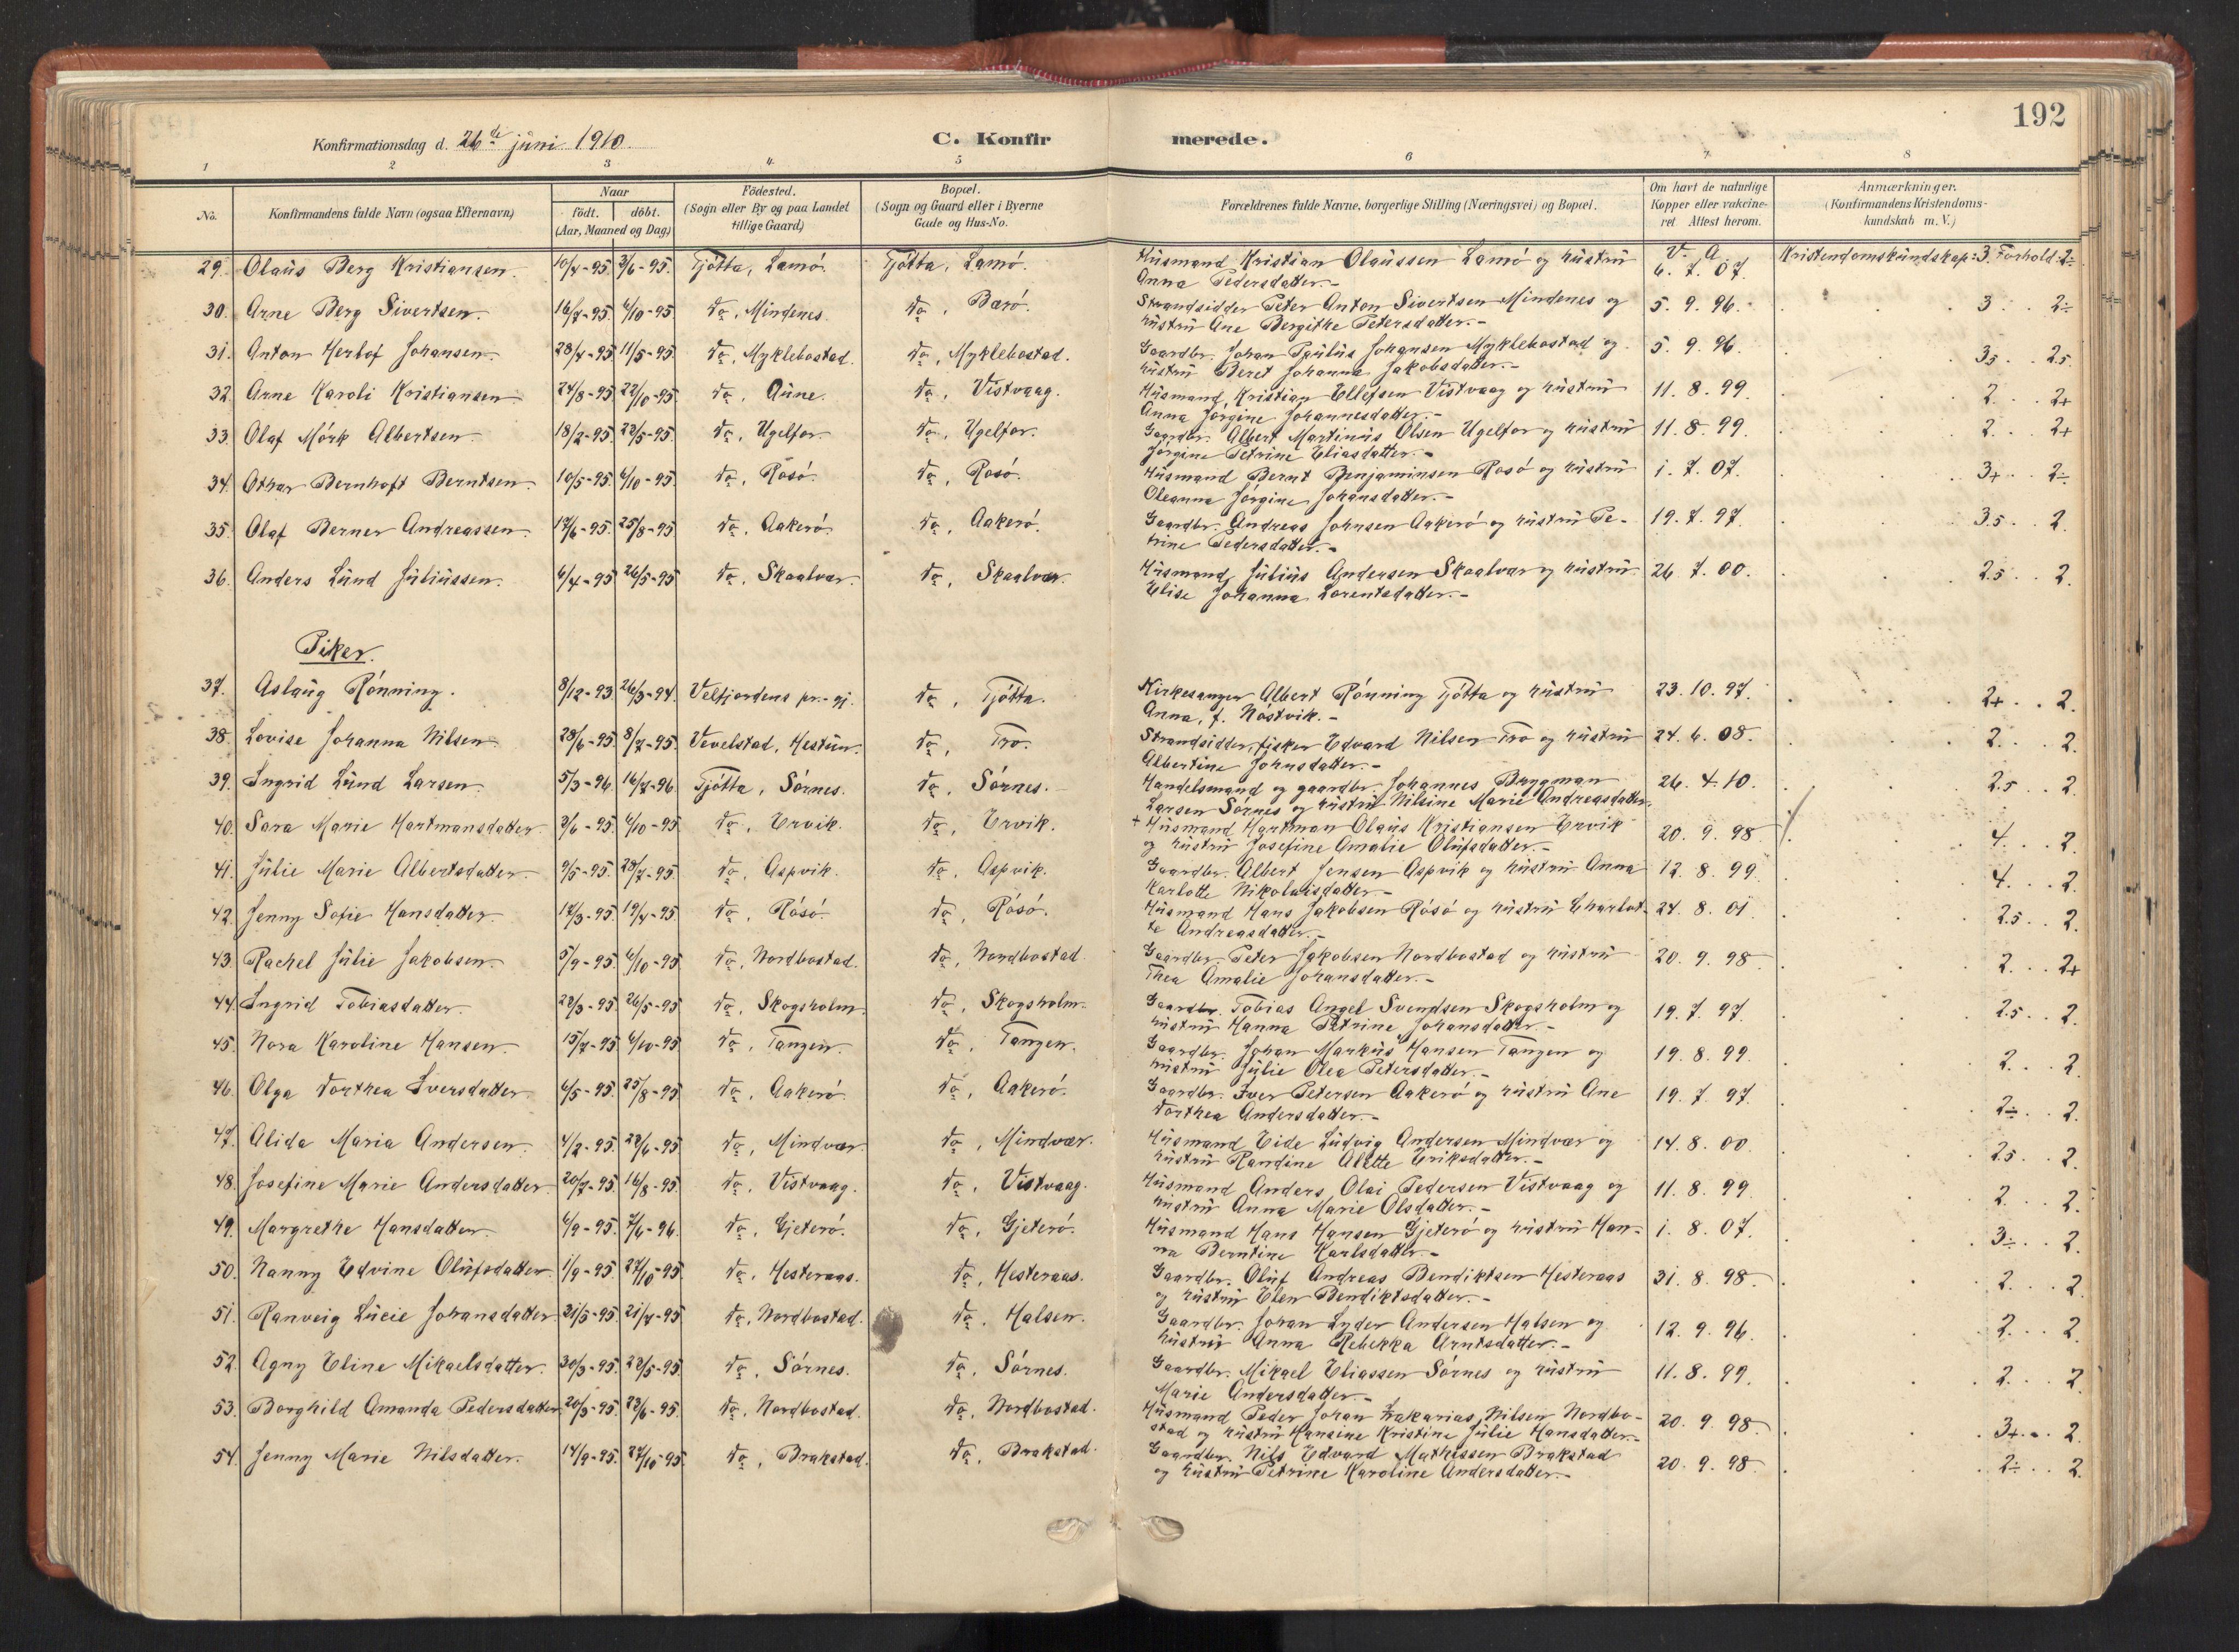 192
Konfirmationsdag d. 26de juni 1910.
C. Konfirmerede.
1 2 3 4 5 6 7 8
No. | Konfirmandens fulde Navn (ogsaa Efternavn) | Naar født. | døbt. (Aar, Maaned og Dag) | Födested. (Sogn eller By og paa Landet tillige Gaard) | Bopæl. (Sogn og Gaard eller i Byerne Gade og Hus-No. | Forældrenes fulde Navne, borgerlige Stilling (Næringsvei) og Bopæl. | Om havt de naturlige Kopper eller vakcineret Attest herom. | Anmærkninger. (Konfirmandens Kristendomskundskab m.V.)
29. Olaus Berg Kristiansen. 10/4-95 3/6-95. Tjøtta, Lamø. Tjøtta, Lamø. Husmand Kristian Olaussen Lamø og hustru V. A. Kristendomskundskap: 3. Forhold: 2÷
Anna Pedersdatter.- 6. 7. 07.
30. Arne Berg Sivertsen. 16/7-95 6/10-95. do, Mindenes. do, Bærø. Strandsidder Peter Anton Sivertsen Mindenes og 5. 9. 96. 3 . . 2÷
hustru Ane Bergithe Petersdatter.-
31. Anton Herlof Johansen. 28/4-95 11/5-95. do, Myklebostad. do, Myklebostad. Gaardbr. Johan Paulus Johansen Myklebostad og 5. 9. 96. 3.5 . . 2.5
hustru Beret Johanna Jakobsdatter.-
32. Arne Karoli Kristiansen. 24/8-95 22/10-95. do, Aune. do, Vistvaag. Husmand Kristian Ellefsen Vistvaag og hustru 11. 8. 99. 2. . . 2+
Anna Jørgine Johannesdatter.-
33. Olaf Mørk Albertsen. 18/2-95 22/5-95. do, Ugelfor. do, Ugelfor. Gaardbr. Albert Martinus Olsen Ugelfor og hustru 11. 8. 99. 2. . . 2+
Jørgine Petrine Eliasdatter.-
34. Othar Bernhoft Berntsen. 10/5-95 6/10-95. do, Rosø. do, Rosø. Husmand Bernt Benjaminsen Rosø og hustru 1. 7. 07. 3+ . . 2÷
Oleanna Jørgine Johansdatter.-
35. Olaf Berner Andreassen. 17/6-95. 25/8-95 do, Aakerø. do, Aakerø. Gaardbr. Andreas Johnsen Aakerø og hustru Pe- 19. 7. 97. 3.5 . . 2.
trine Pedersdatter.-
36. Anders Lund Juliussen. 6/4-95 26/5-95 do, Skaalvær. do, Skaalvær. Husmand Julius Andersen Skaalvær og hustru 26. 7. 00. 2.5 . . 2.
Elise Johanna Lorentsdatter.-
Piker.
37. Aslaug Rønning. 8/12-93. 26/3-94. Velfjordens pr.-gj. do, Tjøtta. Kirkesanger Albert Rønning Tjøtta og hustru 23. 10. 97. 2+ . . 2.
Anna, f. Nøstvik.-
38. Lovise Johanna Nilsen. 28/6-95 8/7-95. Vevelstad, Hestun. do, Tro. Strandsidder, fisker Edvard Nilsen Tro og hustru 24. 6. 08. 2. . . 2.
Albertine Johnsdatter.-
39. Ingrid Lund Larsen. 5/3-96. 16/7-96 Tjøtta, Sørnes. do, Sørnes. Handelsmand og gaardbr. Johannes Brygman 26. 4. 10. 2.5 . . 2.
Larsen Sørnes og hustru Nilsine Marie Andreasdatter.
40. Sara Marie Hartmansdatter. 2/6-95. 6/10-95. do, Ervik. do, Ervik. + Husmand Hartman Olaus Kristiansen Ervik 20. 9. 98 4. . . 2.
og hustru Josefine Amalie Olufsdatter.-
41. Julie Marie Albertsdatter. 9/5-95. 28/7-95. do, Aspvik. do, Aspvik. Gaardbr. Albert Jensen Aspvik og hustru Anna 12. 8. 99. 4. . . 2.
Karlotte Nikolaisdatter.-
42. Jenny Sofie Hansdatter. 17/3-95. 19/4-95 do, Røsø. do, Røsø. Husmand Hans Jakobsen Røsø og hustru Charlot- 24. 8. 01. 2.5 . . 2.
te Andreasdatter.-
43. Rachel Julie Jakobsen. 5/9-95. 6/10-95. do, Nordbostad. do, Nordbostad. Gaardbr. Peter Jakobsen Nordbostad og hustru 20. 9. 98. 2. . . 2+
Thea Amalie Johansdatter.-
44. Ingrid Tobiasdatter. 22/3-95. 26/5-95 do, Skogsholm. do, Skogsholm. Gaardbr. Tobias Angel Svendsen Skogsholm og 19. 7. 97. 2.5 . . 2.
hustru Hanna Petrine Johansdatter.-
45. Nora Karoline Hansen. 15/7-95 6/10-95 do, Tangen. do, Tangen. Gaardbr. Johan Markus Hansen Tangen og 19. 8. 99. 2. . . 2.
hustru Julie Olea Petersdatter.-
46. Olga Dorthea Iversdatter. 6/5-95. 25/8-95. do, Aakerø. do, Aakerø. Gaardbr. Iver Petersen Aakerø og hustru Ane 19. 7. 97. 2÷ . . 2.
Dorthea Andersdatter.-
47. Alida Maria Andersen. 4/2-95. 22/6-95 do, Mindvær. do, Mindvær. Husmand Eide Ludvig Andersen Mindvær og 14. 8. 00. 2.5 . . 2.
hustru Randine Alette Eriksdatter.-
48. Josefine Marie Andersdatter. 20/7-95. 16/8-95. do, Vistvaag. do, Vistvaag. Husmand Anders Olai Pedersen Vistvaag og 11. 8. 99. 2. . . 2.
hustru Anna Marie Olsdatter.-
49. Margrethe Hansdatter. 6/9-95. 7/6-96. do, Gjeterø. do, Gjeterø. Husmand Hans Hansen Gjeterø og hustru Han- 1. 8. 07. 3÷ . . 2.
na Berntine Karlsdatter.-
50. Nanny Edvine Olufsdatter. 1/9-95. 27/10-95. do, Hesteraas. do, Hesteraas. Gaardbr. Oluf Andreas Bendiktsen Hesteraas 31. 8. 98. 2. . . 2.
og hustru Elen Bendiktsdatter.-
51. Ranveig Lucie Johansdatter. 31/5-95. 21/7-95 do, Nordbostad. do, Halsen. Gaardbr. Johan Lyder Andersen Halsen og 12. 9. 96. 2. . . 2.
hustru Anna Rebekka Arntsdatter.-
52. Agny Eline Mikaelsdatter. 30/3-95. 22/5-95. do, Sørnes. do, Sørnes. Gaardbr. Mikael Eliassen Sørnes og hustru 11. 8. 99. 2. . . 2.
Marie Andersdatter.-
53. Borghild Amanda Pedersdatter. 20/3-95. 23/6-95. do, Nordbostad. do, Nordbostad. Husmand Peder Johan Zakarias Nilsen Nordbo- 20. 9. 98. 3+ . . 2.
stad og hustru Hansine Kristine Julie Hansdatter.-
54. Jenny Marie Nilsdatter. 14/9-95. 27/10-95. do, Brakstad. do, Brakstad. Gaardbr. Nils Edvard Mathissen Brakstad 20. 9. 98. 2÷ . . 2.
og hustru Petrine Karoline Andersdatter.-